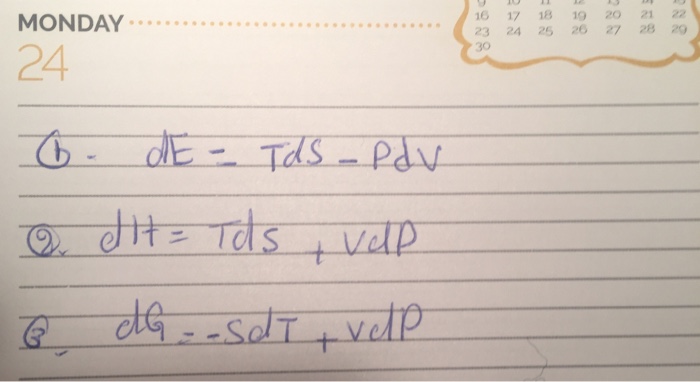 MONDAY
24
16 17 18 19 20 21 22
23 24 25 26 27 28 29
30
①- dE = TdS - PdV
②. dH = Tds + VdP
③- dG = -SdT + VdP